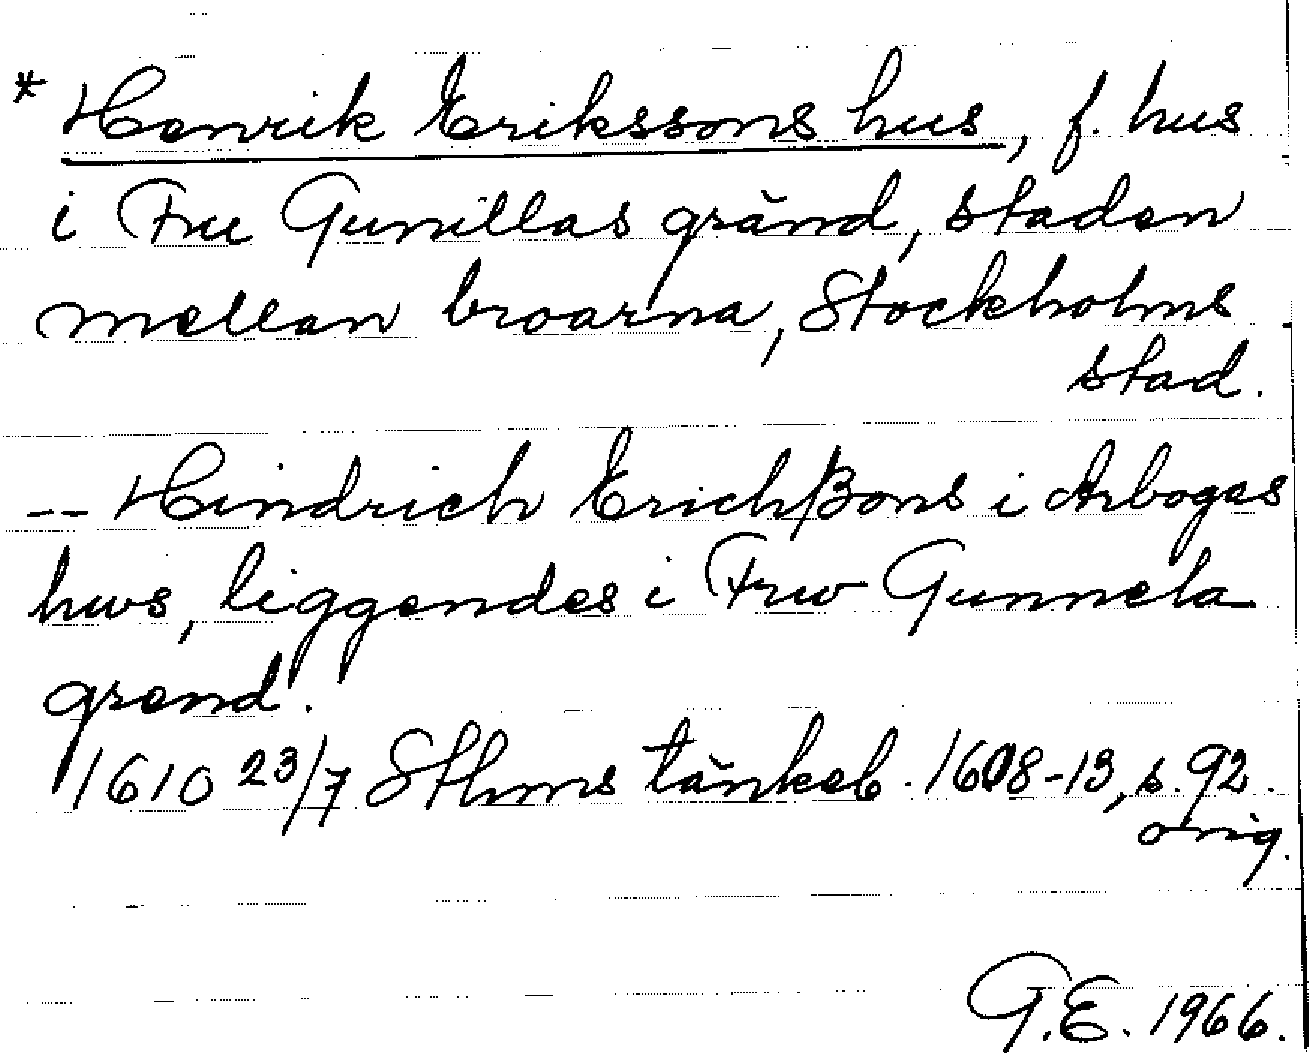 * Henrik Erikssons hus, f. hus
i Fru Gunillas gränd, staden
mellan broarna, Stockholms
stad.
-- Hindrich Erichßons i Arbogas
hws, liggendes i Frw Gunnela
grend.
1610 23/7 Sthms tänkeb. 1608-13, s. 92.
orig.
G.E. 1966.